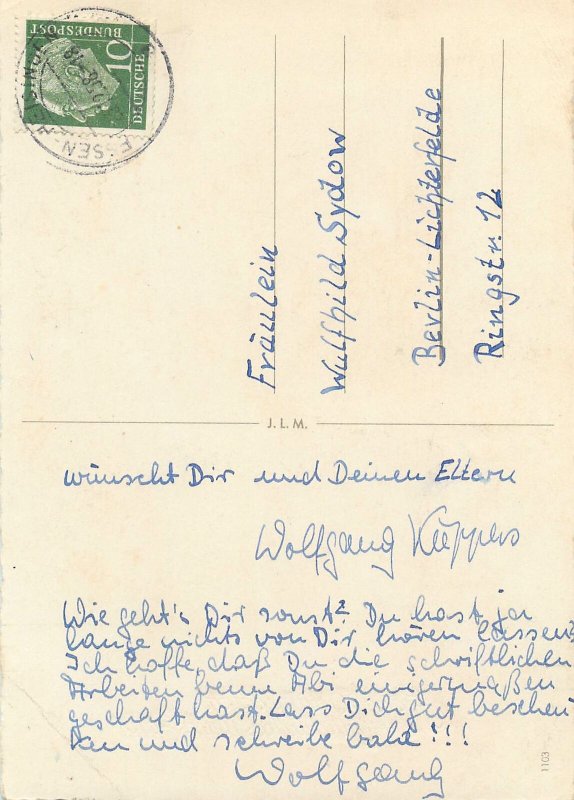 10
DEUTSCHE
BUNDESPOST
ESSEN
Fräulein
Wulfhild Sydow
Berlin-Lichterfelde
Ringstr. 12
J.L.M.
wünscht Dir und Deinen Eltern
Wolfgang Küppers
Wie geht's Dir sonst? Du hast ja
lange nichts von Dir hören lassen.
Ich hoffe, daß Du die schriftlichen
Arbeiten beim Abi einigermaßen
geschafft hast. Lass Dich gut beschen-
ken und schreibe bald!!!
Wolfgang
1103